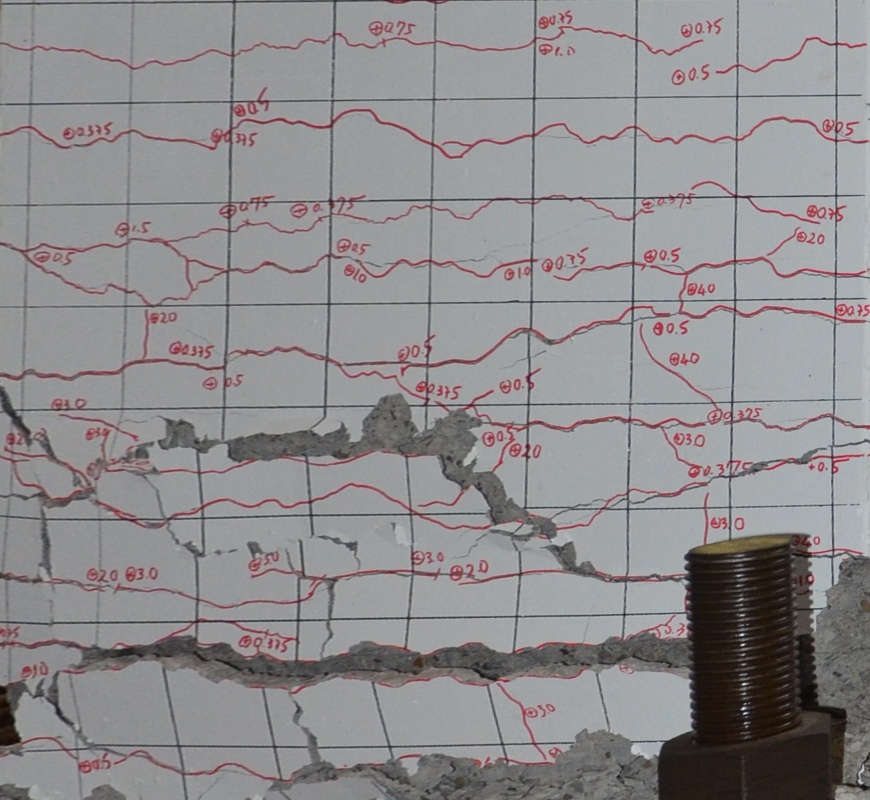 ⊕0.75
⊕0.75
⊕1.0
⊕0.75
⊕0.5
⊕0.5
⊕0.375
⊕0.375
⊕0.5
⊕0.75
⊕0.375
⊕0.375
⊕0.75
⊕1.5
⊕20
⊕0.5
⊕0.5
⊕10
⊕10
⊕0.75
⊕0.5
⊕40
⊕20
⊕0.5
⊕0.75
⊕0.375
⊕0.5
⊕40
⊕0.5
⊕0.375
⊕0.5
⊕30
⊕0.375
⊕0.5
⊕20
⊕30
⊕0.375
+0.5
⊕3.0
⊕3.0
⊕20
⊕3.0
⊕2.0
⊕0.375
⊕10
⊕30
⊕0.5